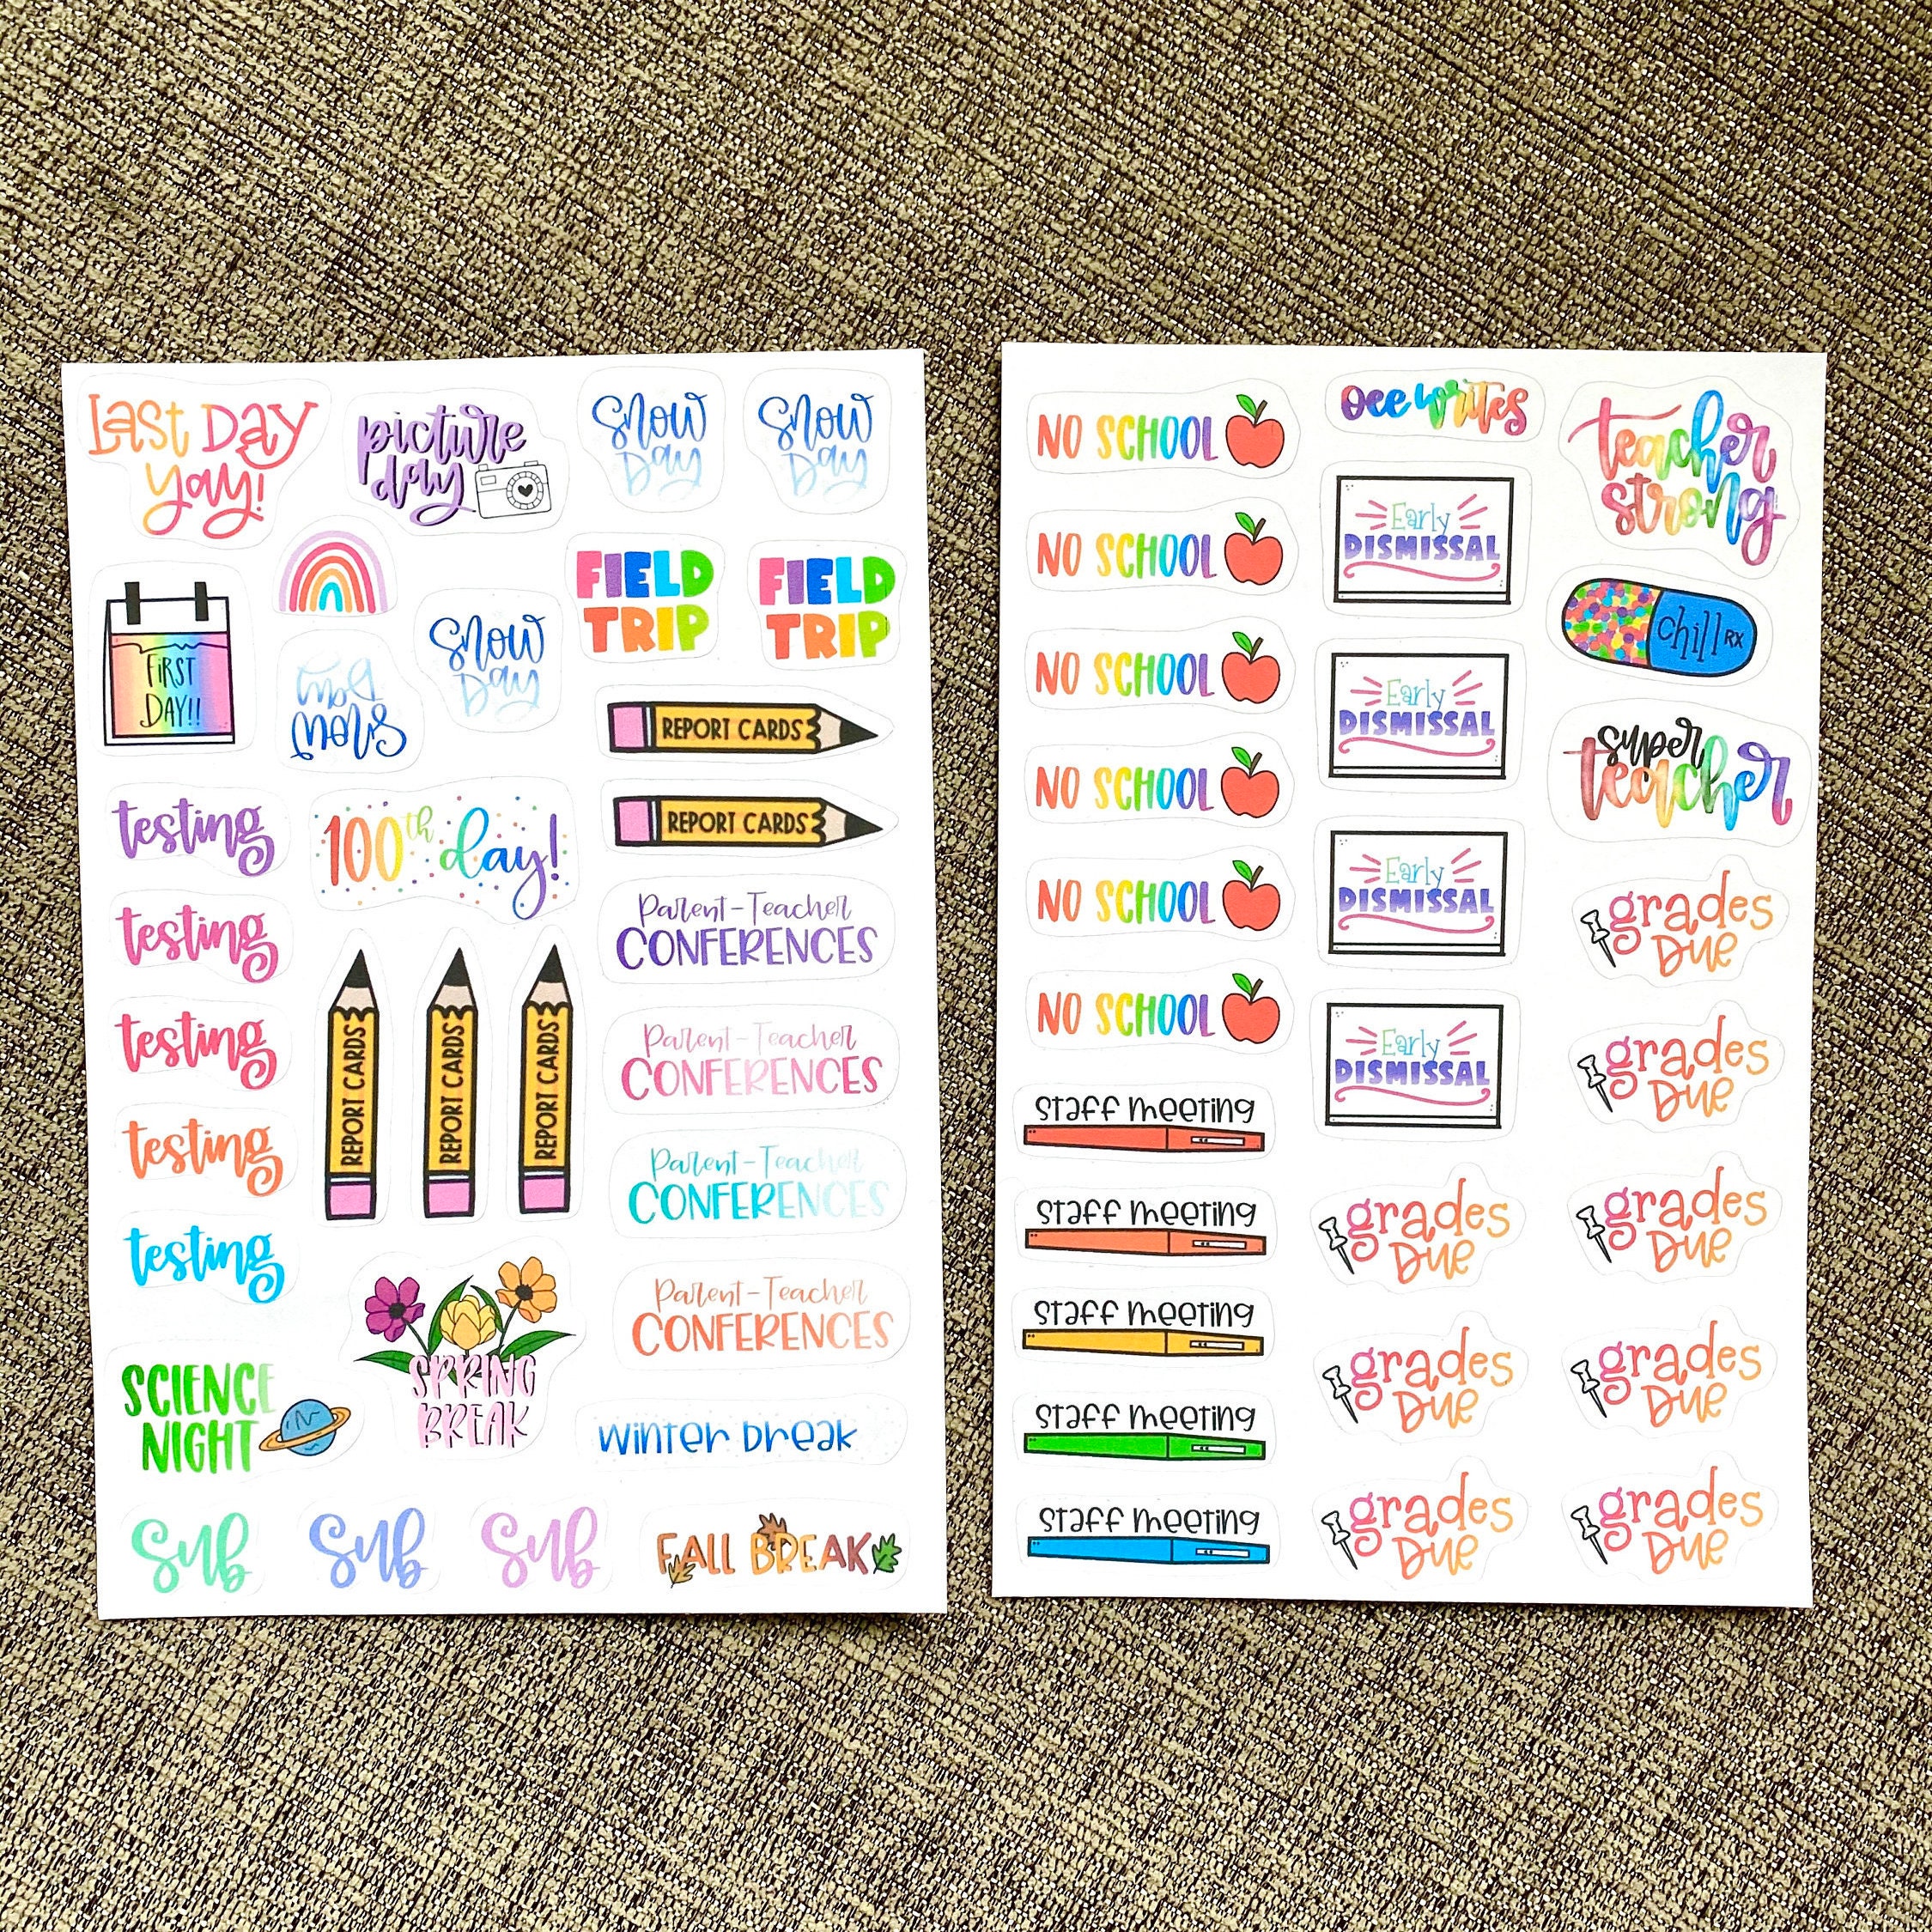 Last Day
yay!
picture
day
Snow
Day
Snow
Day
FIRST
DAY!!
Snow
Day
Snow
Day
FIELD
TRIP
FIELD
TRIP
REPORT CARDS
REPORT CARDS
testing
100th day!
testing
testing
testing
testing
REPORT CARDS
REPORT CARDS
REPORT CARDS
Parent-Teacher
CONFERENCES
Parent-Teacher
CONFERENCES
Parent-Teacher
CONFERENCES
Parent-Teacher
CONFERENCES
SCIENCE
NIGHT
SPRING
BREAK
winter break
Sub
Sub
Sub
FALL BREAK
NO SCHOOL
NO SCHOOL
NO SCHOOL
NO SCHOOL
NO SCHOOL
NO SCHOOL
staff meeting
staff meeting
staff meeting
staff meeting
staff meeting
oee writes
Early
DISMISSAL
Early
DISMISSAL
Early
DISMISSAL
Early
DISMISSAL
grades
Due
grades
Due
grades
Due
teacher
strong
chill RX
super
teacher
grades
Due
grades
Due
grades
Due
grades
Due
grades
Due